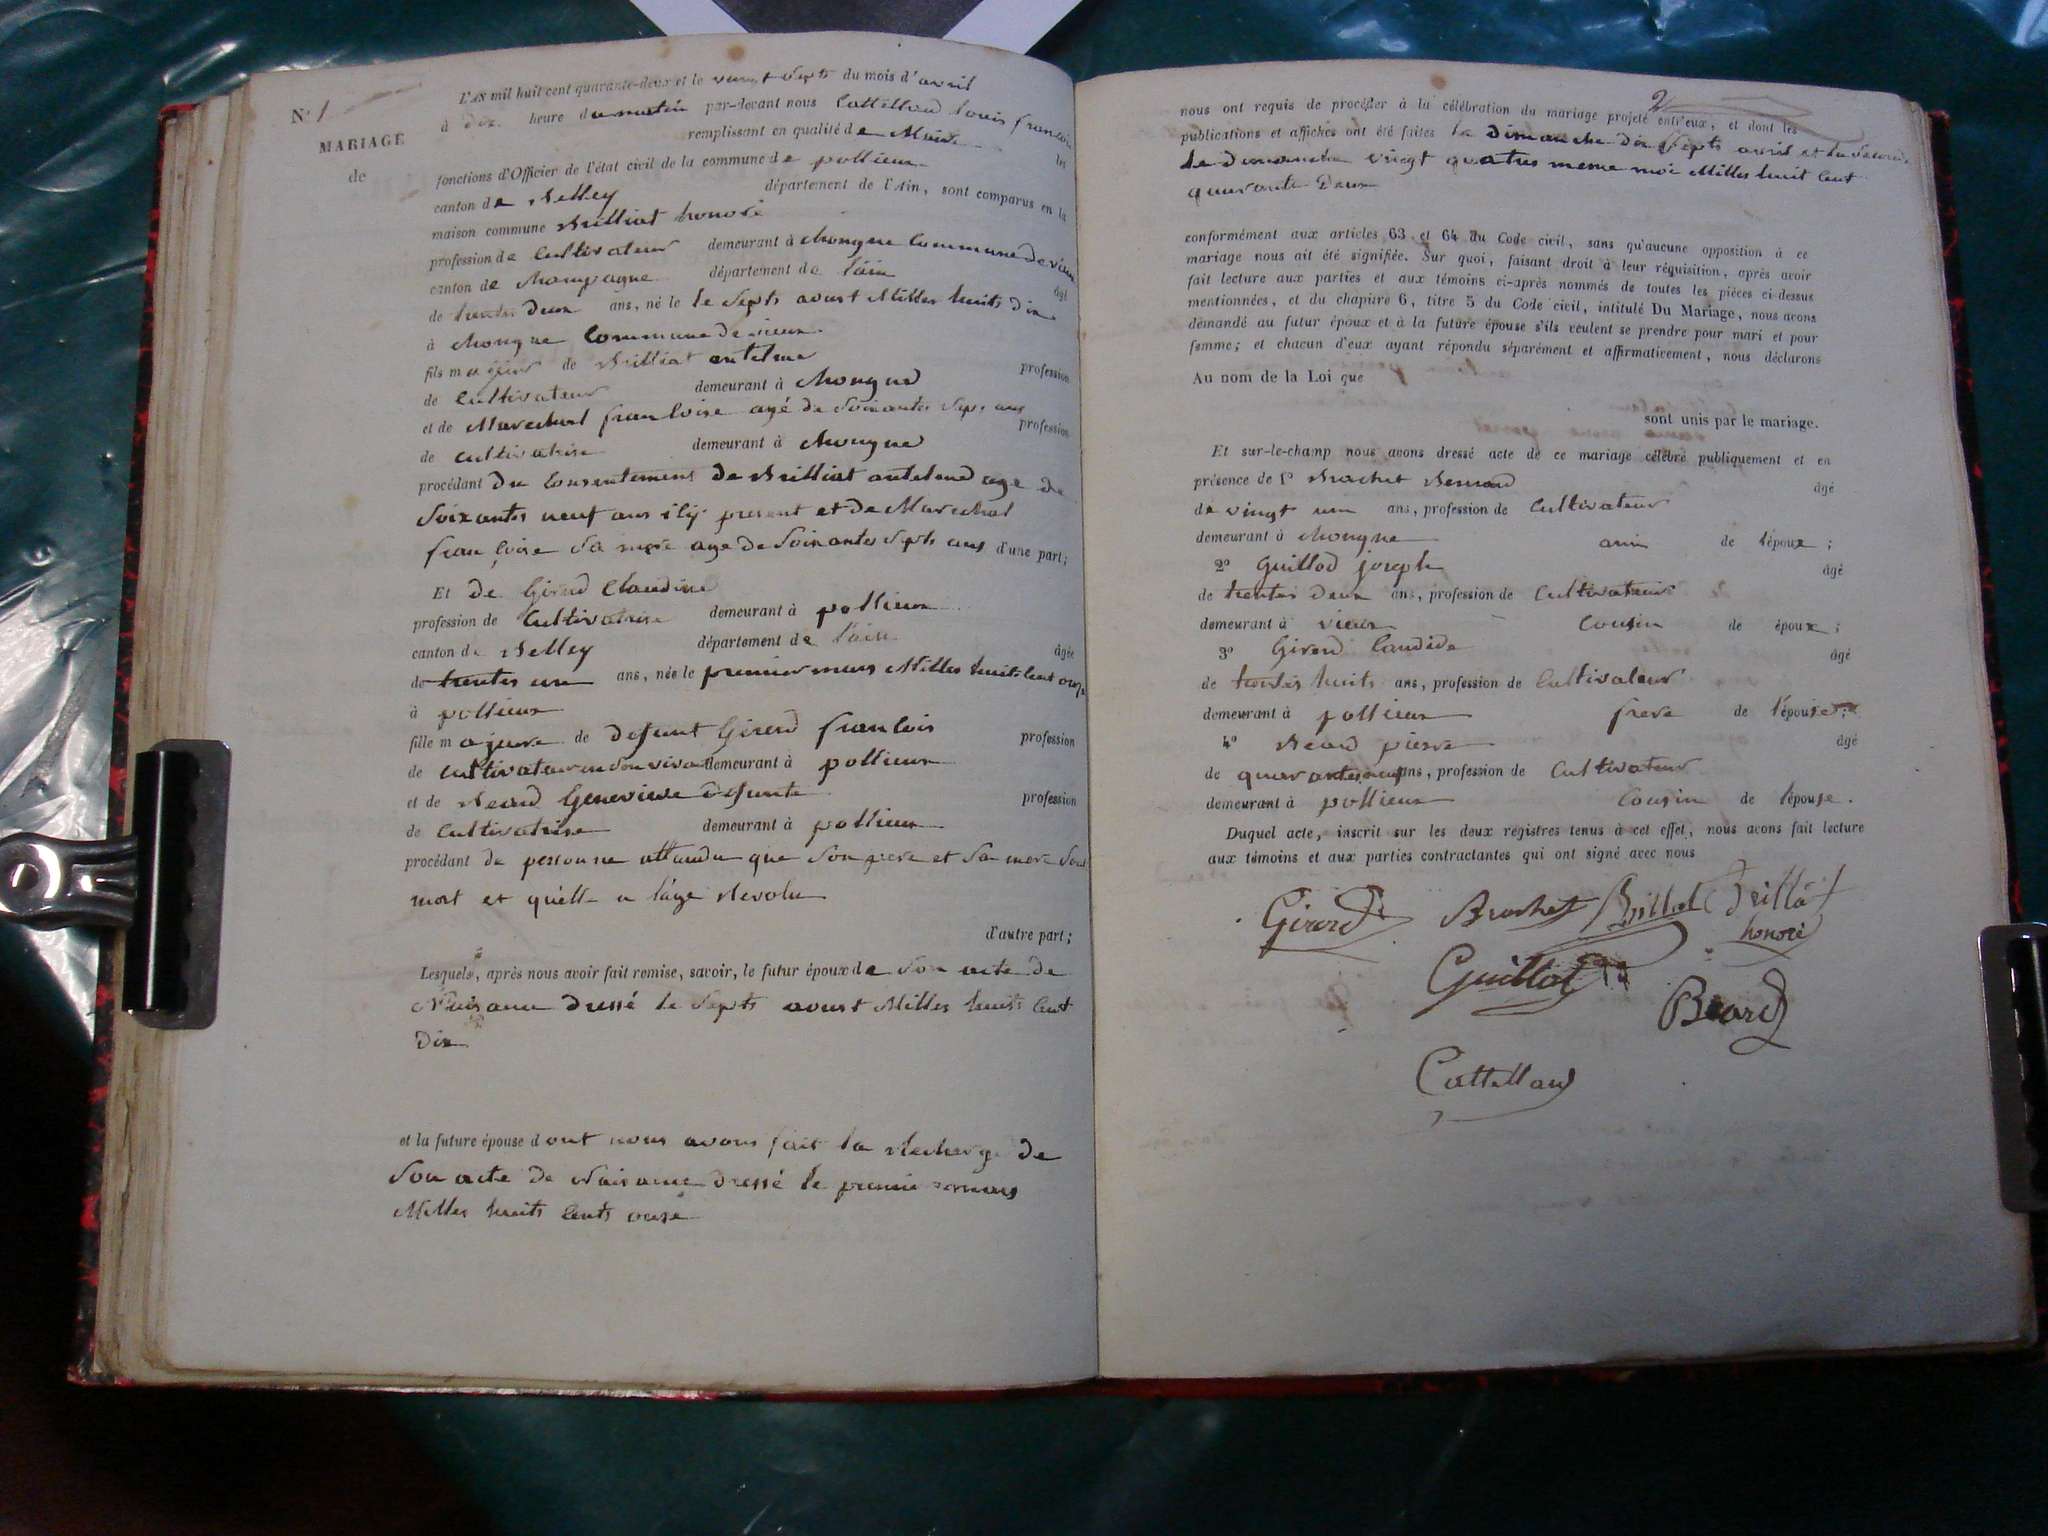 N° 1
MARIAGE
de
L'AN mil huit cent quarante-deux et le vingt septs du mois d'avril
à dix heure du matin par-devant nous Cattelland louis françois
remplissant en qualité de Maire les
fonctions d'Officier de l'état civil de la commune de pollieux
canton de Belley département de l'Ain, sont comparus en la
maison commune Brilliat honoré
profession de Cultivateur demeurant à Chongne Commune de vieux
canton de Champagne département de l'ain âgé
de trentes deux ans, né le le Septs avust Milles huits dix
à Chongne Commune de vieux
fils majeur de Brilliat antelme profession
de Cultivateur demeurant à Chongne
et de Marechal françoise agé de Soixantes Septs ans profession
de cultivatrise demeurant à Chongne
procédant du Consentement de Brilliat antelme age de
Soixantes neuf ans ily present et de Marechal
françoise Sa mere age de Soixantes Septs ans d'une part;
Et de Girerd Claudine
profession de Cultivatrise demeurant à pollieux
canton de Belley département de l'ain âgée
de trentes une ans, née le premier mars Milles huits Cent onze
à pollieux
fille majeure de defunt Girerd françois profession
de cultivateur en son vivant demeurant à pollieux
et de Beard Genevieve defunte profession
de Cultivatrise demeurant à pollieux
procédant de personne attandu que Son pere et Sa mere Sont
mort et qu'elle a l'age Revolu
d'autre part;
Lesquels, après nous avoir fait remise, savoir, le futur époux de Son acte de
Naisance dressé le Septs avust Milles huits Cent
Dix
et la future épouse dont nous avons fait la Recherge de
Son acte de Naisance dressé le premier mars
Milles huits Cents onze
2
nous ont requis de procéder à la célébration du mariage projeté entr'eux, et dont les
publications et affiches ont été faites le dimanche dix Septs avril et la Seconde
le dimanche vingt quatres meme moi Milles huit Cent
quarante Deux
conformément aux articles 63 et 64 du Code civil, sans qu'aucune opposition à ce
mariage nous ait été signifiée. Sur quoi, faisant droit à leur réquisition, après avoir
fait lecture aux parties et aux témoins ci-après nommés de toutes les pièces ci-dessus
mentionnées, et du chapitre 6, titre 5 du Code civil, intitulé Du Mariage, nous avons
demandé au futur époux et à la future épouse s'ils veulent se prendre pour mari et pour
femme; et chacun d'eux ayant répondu séparément et affirmativement, nous déclarons
Au nom de la Loi que
sont unis par le mariage.
Et sur-le-champ nous avons dressé acte de ce mariage célébré publiquement et en
présence de 1° Brachet Bernard âgé
de vingt un ans, profession de Cultivateur
demeurant à Chongne ami de l'époux;
2° Guillod joseph âgé
de trentes deux ans, profession de Cultivateur
demeurant à vieux Cousin de époux;
3° Girerd Candide âgé
de trentes huits ans, profession de Cultivateur
demeurant à pollieux frere de l'épouse;
4° Beard pierre âgé
de quarantes neuf ans, profession de Cultivateur
demeurant à pollieux Cousin de l'épouse.
Duquel acte, inscrit sur les deux registres tenus à cet effet, nous avons fait lecture
aux témoins et aux parties contractantes qui ont signé avec nous
Girerd Brachet Brillat Brillat
honoré
Guillot
Beard
Cattelland